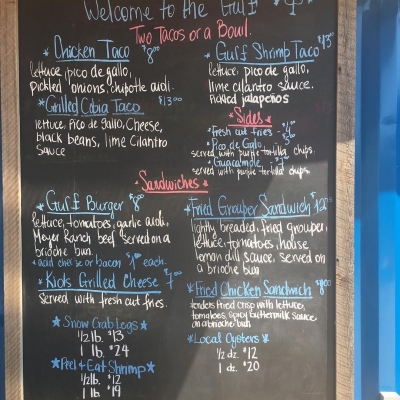 Welcome to the Gulf
Two Tacos or a Bowl.
Chicken Taco $8.00
lettuce, pico de gallo,
pickled onions, chipotle aioli.
Grilled Cobia Taco $13.00
lettuce, Pico de Gallo, Cheese,
black beans, lime cilantro
sauce
Gulf Shrimp Taco $13
lettuce, pico de gallo,
lime cilantro sauce.
Pickled jalapeños
Sides
Fresh cut fries -
Pico de Gallo
served with purple tortilla chips.
Guacamole -
served with purple tortilla chips.
Sandwiches
Gulf Burger $8
lettuce, tomatoes, garlic aioli,
Meyer Ranch beef served on a
brioche bun.
add cheese or bacon $1 each.
Kids Grilled Cheese $7.00
Served with fresh cut fries.
Snow Crab Legs
1/2 lb. $13
1 lb. $24
Peel & Eat Shrimp
1/2 lb. $12
1 lb $19
Fried Grouper Sandwich $12
lightly breaded, fried grouper,
lettuce, tomatoes, house
lemon dill sauce, served on
a brioche bun
Fried Chicken Sandwich $8.00
tenders fried crisp with lettuce,
tomatoes, spicy buttermilk sauce
on a brioche bun
Local Oysters
1/2 dz. $12
1 dz. $20